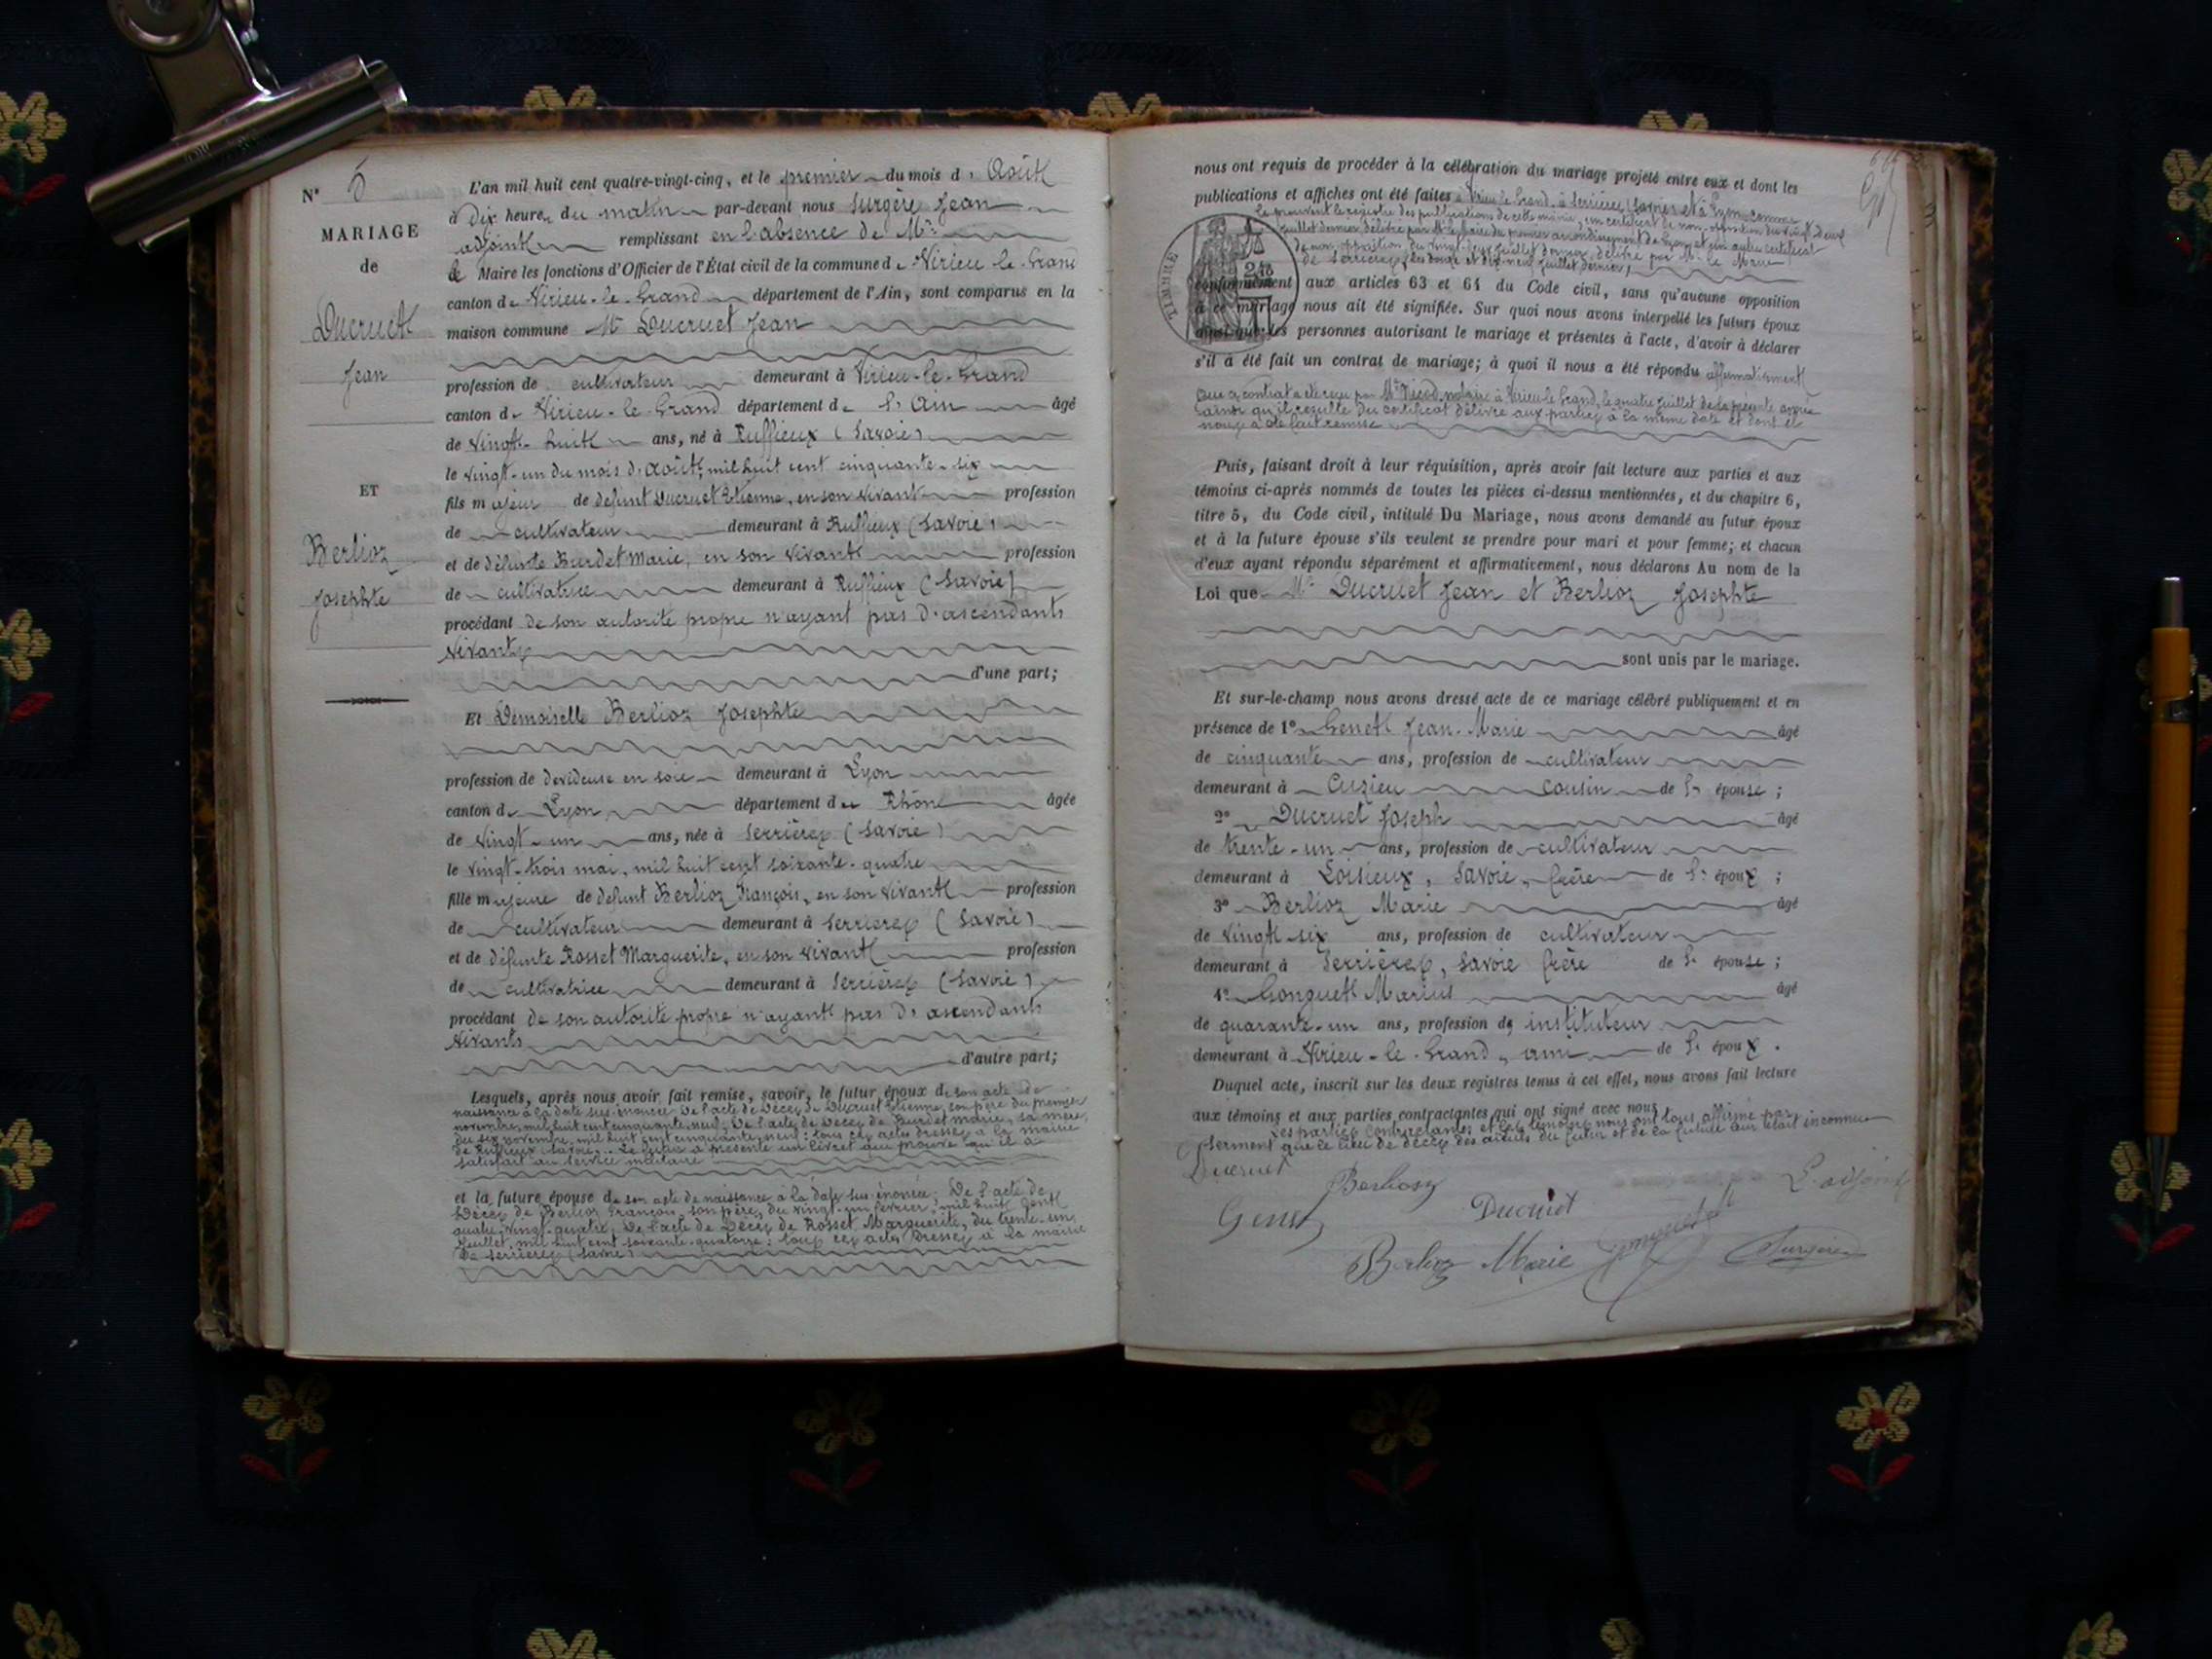 N° 5
MARIAGE
de
Ducruet
Jean
ET
Berlioz
Josephte
L'an mil huit cent quatre-vingt-cinq, et le premier du mois d' Août
à Dix heures du matin par-devant nous Surgère Jean
adjoint remplissant en l'absence de Mr
le Maire les fonctions d'Officier de l'État civil de la commune de Virieu-le-Grand
canton de Virieu-le-Grand département de l'Ain, sont comparus en la
maison commune Mr Ducruet Jean
profession de cultivateur demeurant à Virieu-le-Grand
canton de Virieu-le-Grand département de l'Ain âgé
de vingt-huit ans, né à Ruffieux (Savoie)
le vingt-un du mois d'août, mil huit cent cinquante-six
fils majeur de défunt Ducruet Etienne, en son vivant profession
de cultivateur demeurant à Ruffieux (Savoie)
et de défunte Burdet Marie, en son vivant profession
de cultivatrice demeurant à Ruffieux (Savoie)
procédant de son autorité propre n'ayant pas d'ascendants
vivants
d'une part;
Et Demoiselle Berlioz Josephte
profession de devideuse en soie demeurant à Lyon
canton de Lyon département du Rhône âgée
de vingt-un ans, née à Serrières (Savoie)
le vingt-trois mai, mil huit cent soixante-quatre
fille majeure de défunt Berlioz François, en son vivant profession
de cultivateur demeurant à Serrières (Savoie)
et de défunte Rosset Marguerite, en son vivant profession
de cultivatrice demeurant à Serrières (Savoie)
procédant de son autorité propre n'ayant pas d'ascendants
vivants
d'autre part;
Lesquels, après nous avoir fait remise, savoir, le futur époux de son acte de
naissance à la date sus-énoncée De l'acte de décès de Ducruet Etienne, son père du premier
novembre, mil huit cent cinquante-neuf; De l'acte de décès de Burdet Marie, sa mère,
du six novembre, mil huit cent cinquante-neuf; tous ces actes dressés à la mairie
de Ruffieux (Savoie). Le futur a présenté un livret qui prouve qu'il a
satisfait au service militaire
et la future épouse de son acte de naissance à la date sus-énoncée; De l'acte de
Décès de Berlioz François, son père, du vingt-un février, mil huit cent
quatre-vingt-quatre; De l'acte de Décès de Rosset Marguerite, du trente-un
Juillet, mil huit cent soixante-quatorze; tous ces actes Dressés à la mairie
de Serrières (Savoie)
nous ont requis de procéder à la célébration du mariage projeté entre eux et dont les
publications et affiches ont été faites à Virieu-le-Grand, à Serrières, (Savoie) et à Lyon, comme
le prouvent le registre des publications de cette mairie, un certificat de non-opposition du vingt-deux
juillet dernier délivré par Mr le Maire du premier arrondissement de Lyon, et un autre certificat
de non-opposition, du vingt-deux juillet dernier, délivré par Mr le Maire
de Serrières, les douze et dix-neuf juillet dernier,
TIMBRE
conformément aux articles 63 et 64 du Code civil, sans qu'aucune opposition
à ce mariage nous ait été signifiée. Sur quoi nous avons interpellé les futurs époux
ainsi que les personnes autorisant le mariage et présentes à l'acte, d'avoir à déclarer
s'il a été fait un contrat de mariage; à quoi il nous a été répondu affirmativement
que ce contrat a été reçu par Mr notaire à Virieu-le-Grand, le quatre juillet de la présente année
ainsi qu'il résulte du certificat délivré aux parties à la même date et dont il
nous a été fait remise
Puis, faisant droit à leur réquisition, après avoir fait lecture aux parties et aux
témoins ci-après nommés de toutes les pièces ci-dessus mentionnées, et du chapitre 6,
titre 5, du Code civil, intitulé Du Mariage, nous avons demandé au futur époux
et à la future épouse s'ils veulent se prendre pour mari et pour femme; et chacun
d'eux ayant répondu séparément et affirmativement, nous déclarons Au nom de la
Loi que Mr Ducruet Jean et Berlioz Josephte
sont unis par le mariage.
Et sur-le-champ nous avons dressé acte de ce mariage célébré publiquement et en
présence de 1° Genet Jean-Marie âgé
de cinquante ans, profession de cultivateur
demeurant à Cuzieu cousin de l' épouse;
2° Ducruet Joseph âgé
de trente-un ans, profession de cultivateur
demeurant à Loisieux, Savoie, frère de l' époux;
3° Berlioz Marie âgé
de vingt-six ans, profession de cultivateur
demeurant à Serrières, Savoie frère de l' épouse;
4° Gonguet Marius âgé
de quarante-un ans, profession de instituteur
demeurant à Virieu-le-Grand, ami de l' époux.
Duquel acte, inscrit sur les deux registres tenus à cet effet, nous avons fait lecture
aux témoins et aux parties contractantes qui ont signé avec nous
Les parties contractantes et les témoins nous ont tous affirmé par
serment que le lieu de décès des aïeuls du futur et de la future leur était inconnu
Ducruet
Berlioz
L'adjoint
Genet
Ducruet
Berlioz Marie
Gonguet
Surgère